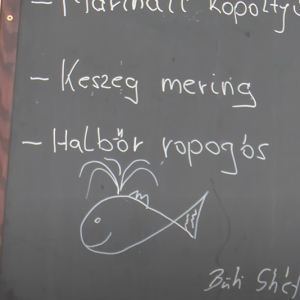 - Marinált kopoltyú
- Keszeg mering
- Halbőr ropogós
Büfi